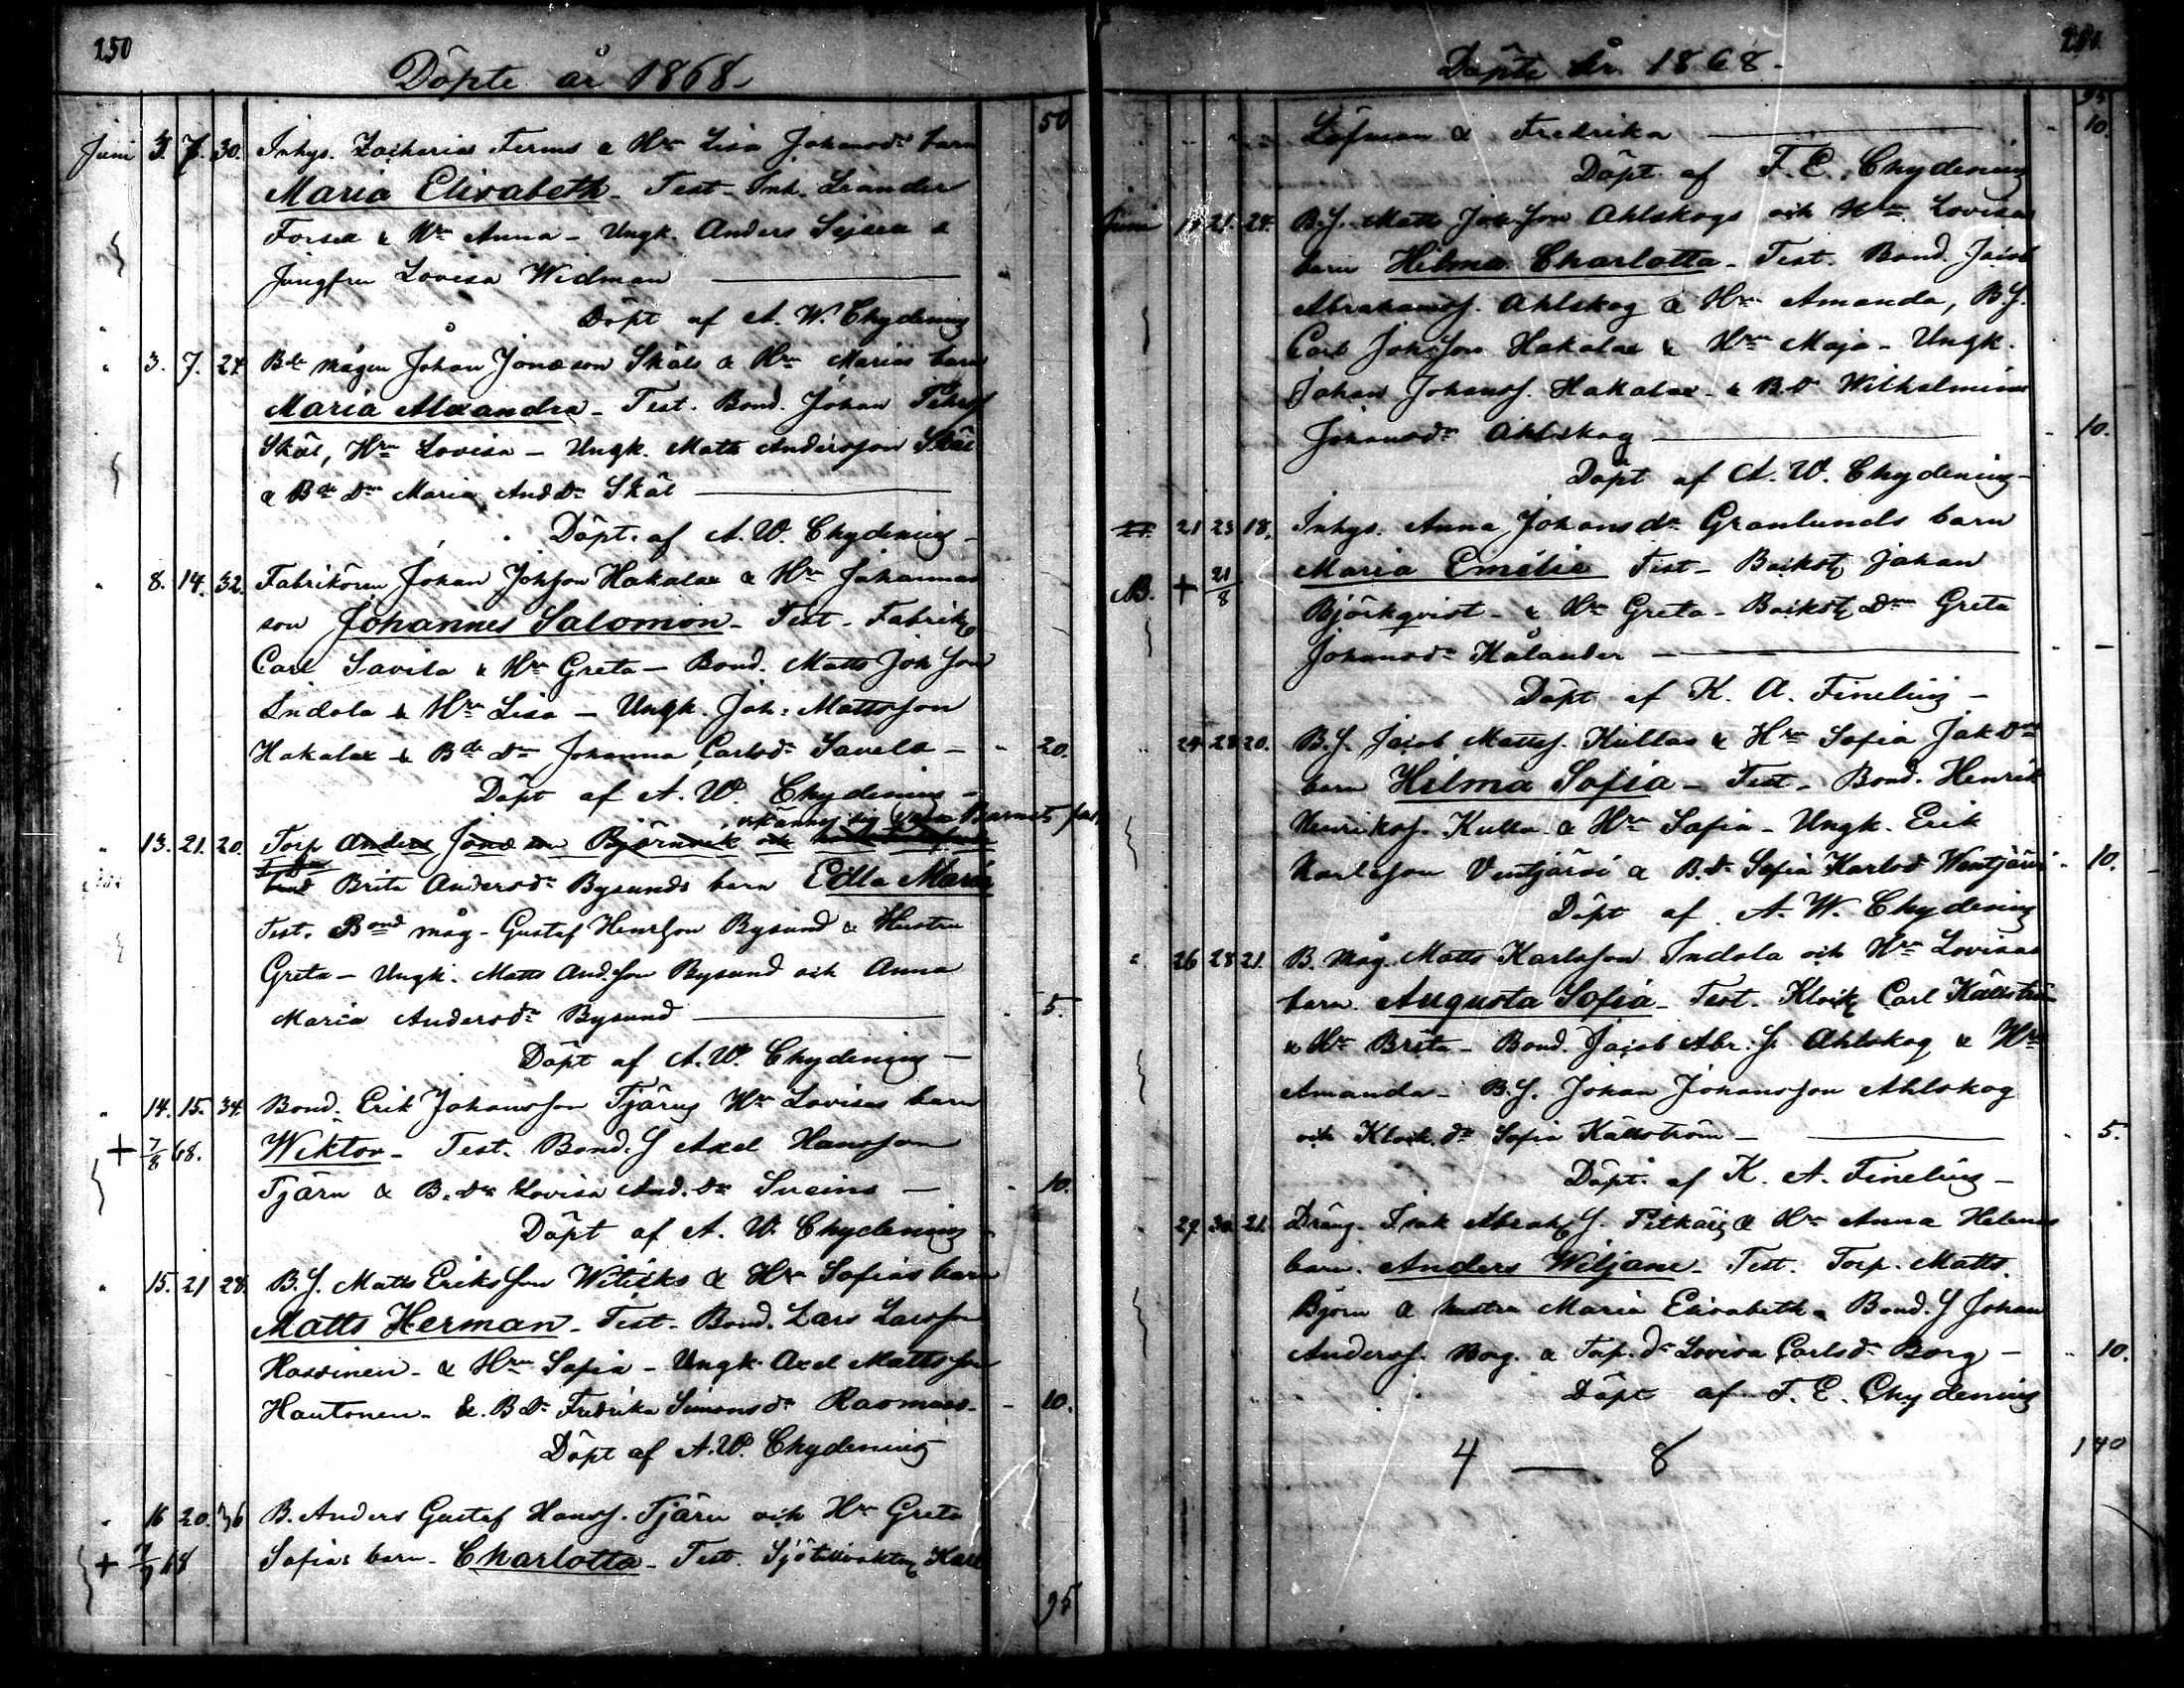 250
Döpte år 1868
50
Juni 3. 7. 30. Inhys. Zacharias Ferms & Hru Lisa Johansdrs barn
Maria Elisabeth - Test - Inh. Leander
Forsell & Hru Anna - Ungk. Anders Sejsen &
Jungfru Lovisa Widman
Döpt af A. W. Chydenius
" 3. 7. 24. Bde mågen Johan Jonasson Skäls & Hru Marias barn
Maria Alexandra - Test. Bond. Johan Pehrss
Skäl, Hru Lovisa - Ungk. Matts Andersson Skäl
& Bde Dr Maria And.Dr Skäl
Döpt af A. W. Chydenius -
" 8. 14. 32. Fabrikören Johan Johsson Hakalax & Hru Johannas
son Johannes Salomon - Test - Fabrik.
Carl Savela & Hru Greta - Bond. Matts Joh Son
Indola & Hru Lisa - Ungk. Joh: Mattsson
Hakalax & Bde Dr Johanna Carlsdr Savela - " 20.
Döpt af A. W. Chydenius -
erkänner sig vara Barnets far,
" 13. 21. 20. Torp Anders Jonasson Björnvik och
Brita Andersdr Bysunds barn Edla Maria
Test. Bond måg - Gustaf Henrsson Bysund & Hustru
Greta - Ungk. Matts And.son Bysund och Anna
Maria Andersdr Bysund - 5.
Döpt af A. W. Chydenius -
" 14. 15. 34. Bond. Erik Johansson Tjärus Hru Lovisas barn
+ 7/8 68. Wiktor - Test. Bond. S Axel Hansson
Tjäru & B. Dr Lovisa And. Dr Sveins - " 10.
Döpt af A. W. Chydenius
" 15. 21 28. B. S. Matts Eriksson Witicks & Hru Sofias barn
Matts Herman - Test - Bond. Lars Larsson
Hassinen - & Hru Sofia - Ungk. Axel Mattsson
Hautonen - & B Dr Fredrika Simonsdr Rasmus - - 10.
Döpt af A. W. Chydenius
" 16 20. 36 B. Anders Gustaf Hanss. Tjäru och Hru Greta
+ 68 Sofias barn - Charlotta - Test. Karl
95
Döpte år 1868 -
95
Löfman & Fredrika - 10.
Döpt af F. E. Chydenius
Juni 21. 24. B. S. Matts Joh. Son Ahlskogs och Hru Lovisas
barn Hilma Charlotta - Test. Bond. Jacob
Abrahamss. Ahlskog & Hru Amanda, B. S.
Carl Johsson Hakalax & Hru Maja - Ungk.
Johan Johanss. Hakalax - & B. Dr Wilhelmina
Johansdr Ahlskog - 10.
Döpt af A. W. Chydenius -
21 23 18. Inhys. Anna Johansdr Granlunds barn
+ 21/8 Maria Emelie Test - Backst. Johan
Björkqvist - & Hru Greta - Backst. Dr Greta
Johansdr Kålander - -
Döpt af K. A. Finelius -
" 24 28 20. B. S. Jacob Mattss. Kullas & Hru Sofia Jak Drs
barn Hilma Sofia - Test - Bond. Henrik
Henrikss. Kulla - & Hru Sofia - Ungk. Erik
Karlsson Ventjärvi & B. Dr Sofia Karlsd Wentjärvi - 10.
Döpt af A. W. Chydenius
" 26 28 21. B. måg. Matts Karlsson Indola och Hru Lovisas
barn. Augusta Sofia - Test. Klock. Carl Källström
& Hru Brita - Bond. Jacob Abr. S. Ahlskog & Hru
Amanda - B. S. Johan Johansson Ahlskog
och Klock. dr Sofia Källström - 5.
Döpt af K. A. Finelius -
29. 30. 21. Dräng. Isak Abrah. S. & Hru Anna Helenas
barn. Anders Wiljam - Test. Torp. Matts
Björn & hustru Maria Elisabeth - Bond. S Johan
Anderss. Borg. & Torp. dr Lovisa Carlsdr Borg - " 10.
Döpt af F. E. Chydenius
4 — 8
140